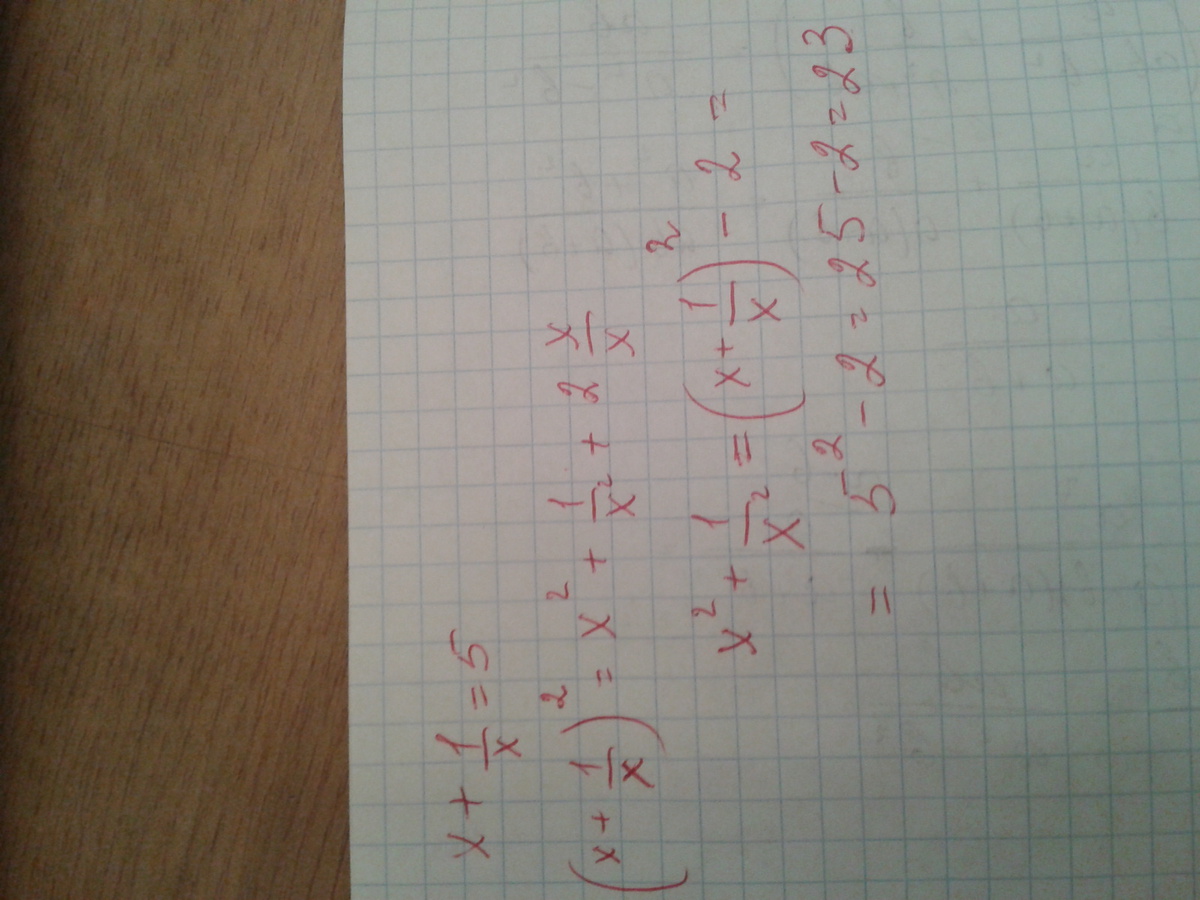 x + 1/x = 5
(x + 1/x)² = x² + 1/x² + 2 x/x
x² + 1/x² = (x + 1/x)² - 2 =
= 5² - 2 = 25 - 2 = 23